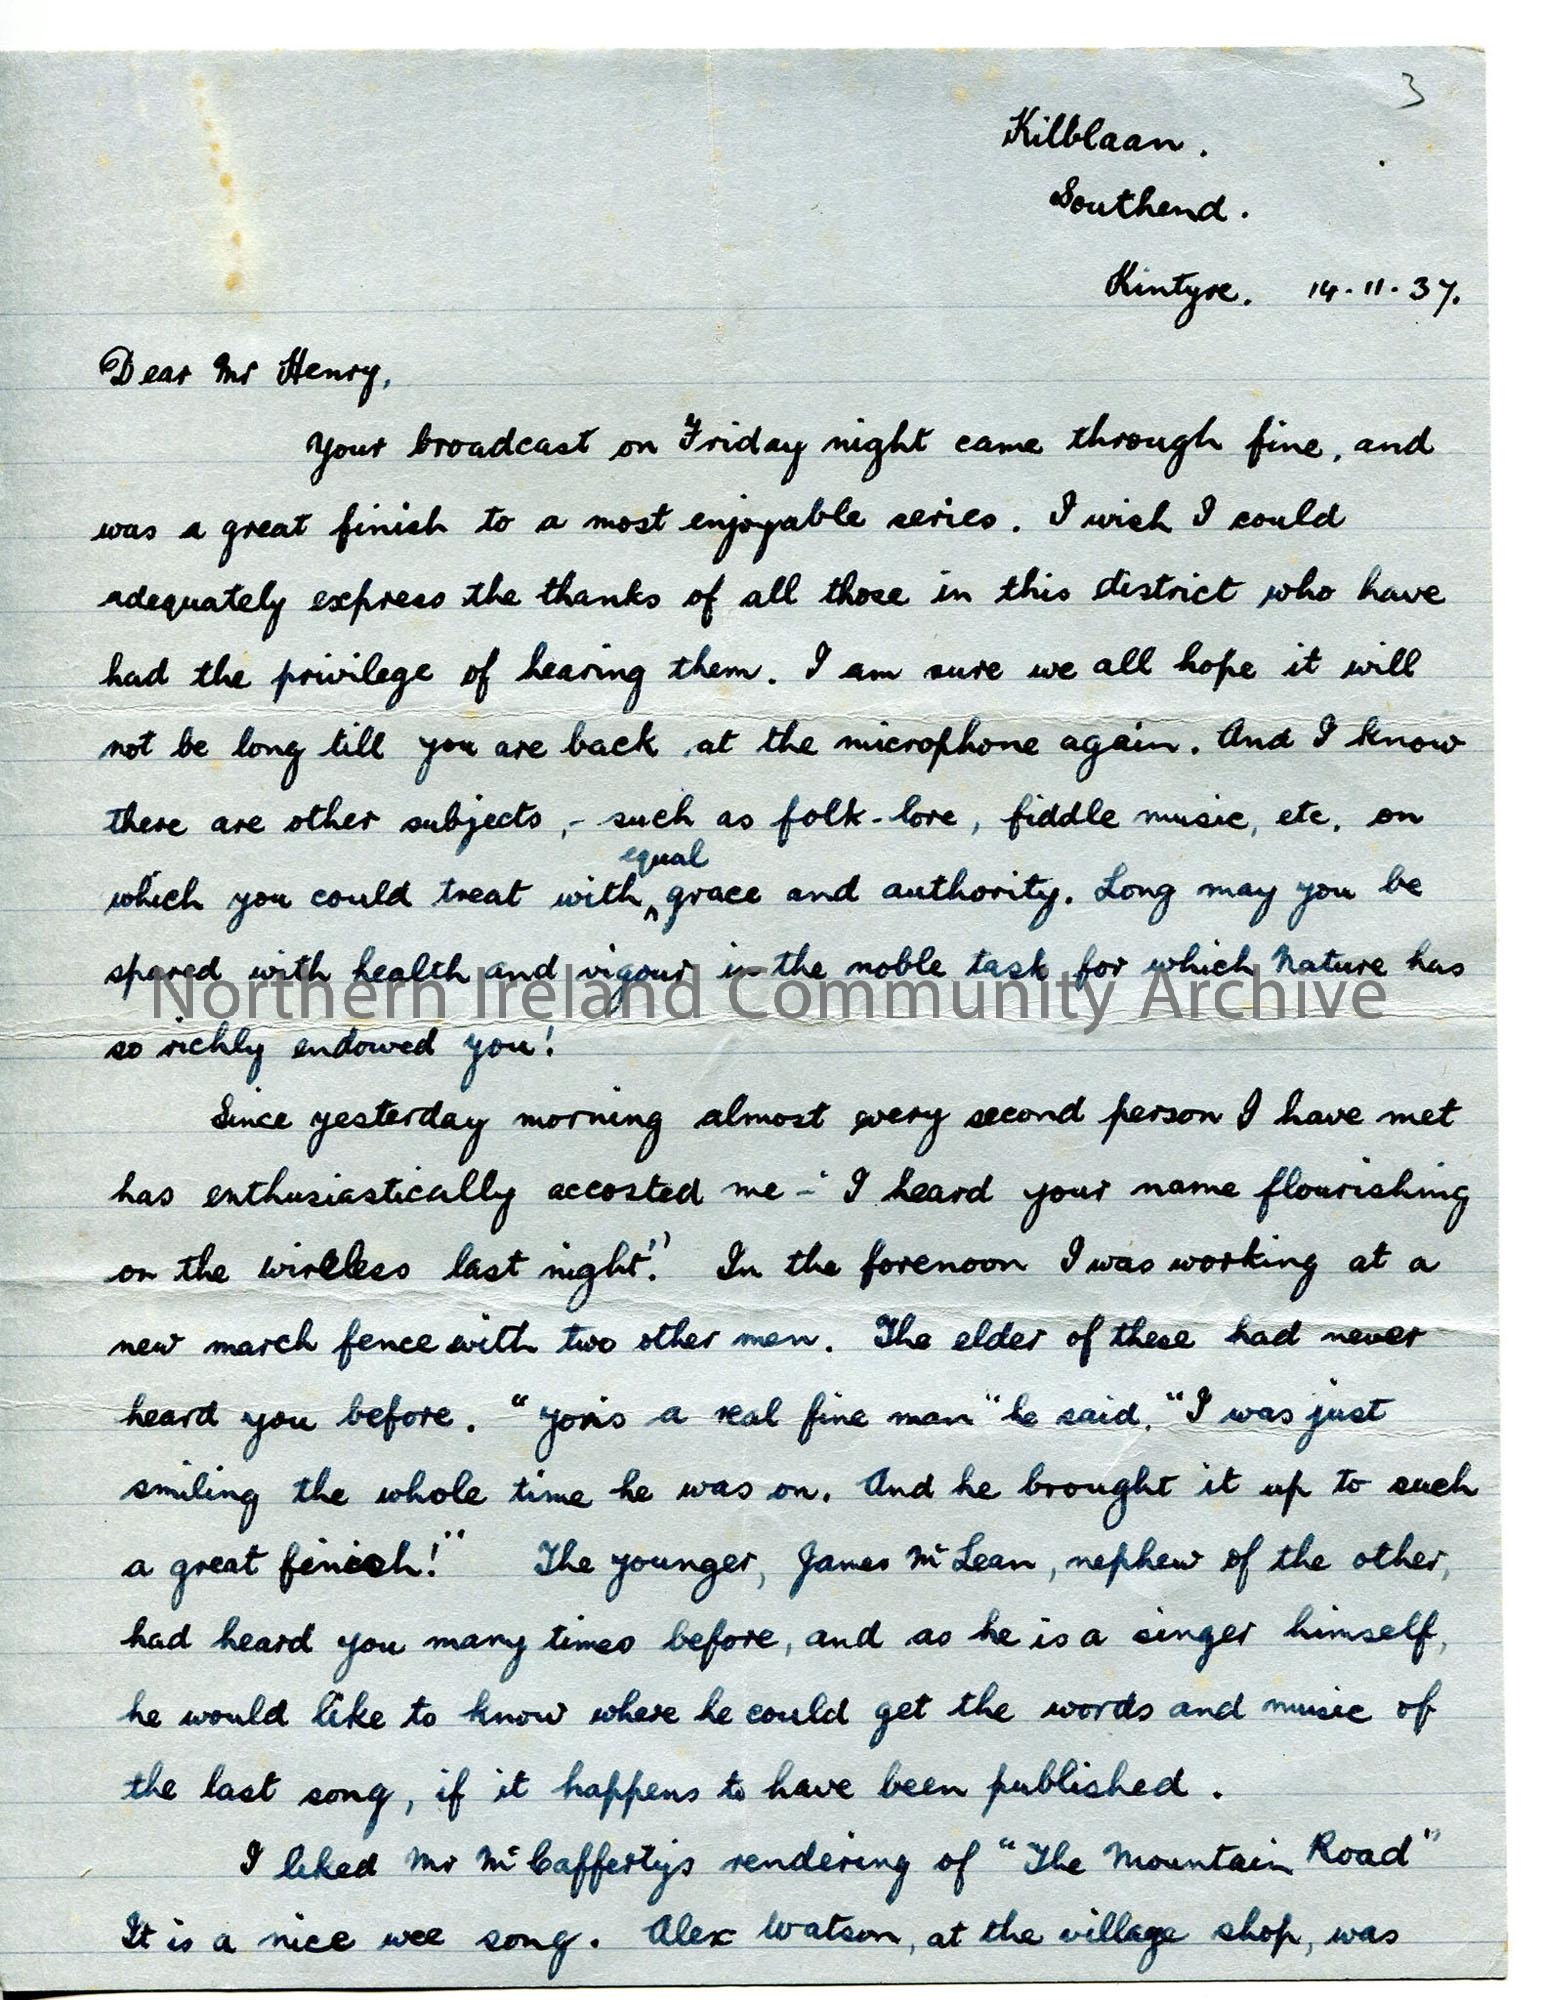 3
Kilblaan.
Southend.
Kintyre. 14-11-37.
Dear Mr Henry,
Your broadcast on Friday night came through fine, and
was a great finish to a most enjoyable series. I wish I could
adequately express the thanks of all those in this district who have
had the privilege of hearing them. I am sure we all hope it will
not be long till you are back at the microphone again. And I know
there are other subjects, - such as folk-lore, fiddle music, etc, on
equal
which you could treat with ‸ grace and authority. Long may you be
spared with health and vigour in the noble task for which Nature has
Northern Ireland Community Archive
so richly endowed you!
Since yesterday morning almost every second person I have met
has enthusiastically accosted me - "I heard your name flourishing
on the wireless last night!" In the forenoon I was working at a
new march fence with two other men. The elder of these had never
heard you before. "Yon's a real fine man" he said. "I was just
smiling the whole time he was on. And he brought it up to such
a great finish!" The younger, James McLean, nephew of the other,
had heard you many times before, and as he is a singer himself,
he would like to know where he could get the words and music of
the last song, if it happens to have been published.
I liked Mr McCafferty's rendering of "The Mountain Road"
It is a nice wee song. Alex Watson, at the village shop, was